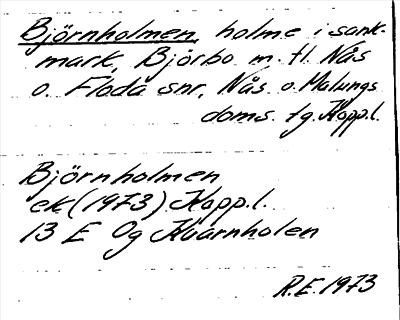 Björnholmen, holme i sank-
mark, Björbo m. fl. Nås
o. Floda snr, Nås o. Malungs
doms. tg. Kopp.l.
Björnholmen
ek (1973) Kopp.l.
13 E 0g Kvarnholen
R.E. 1973